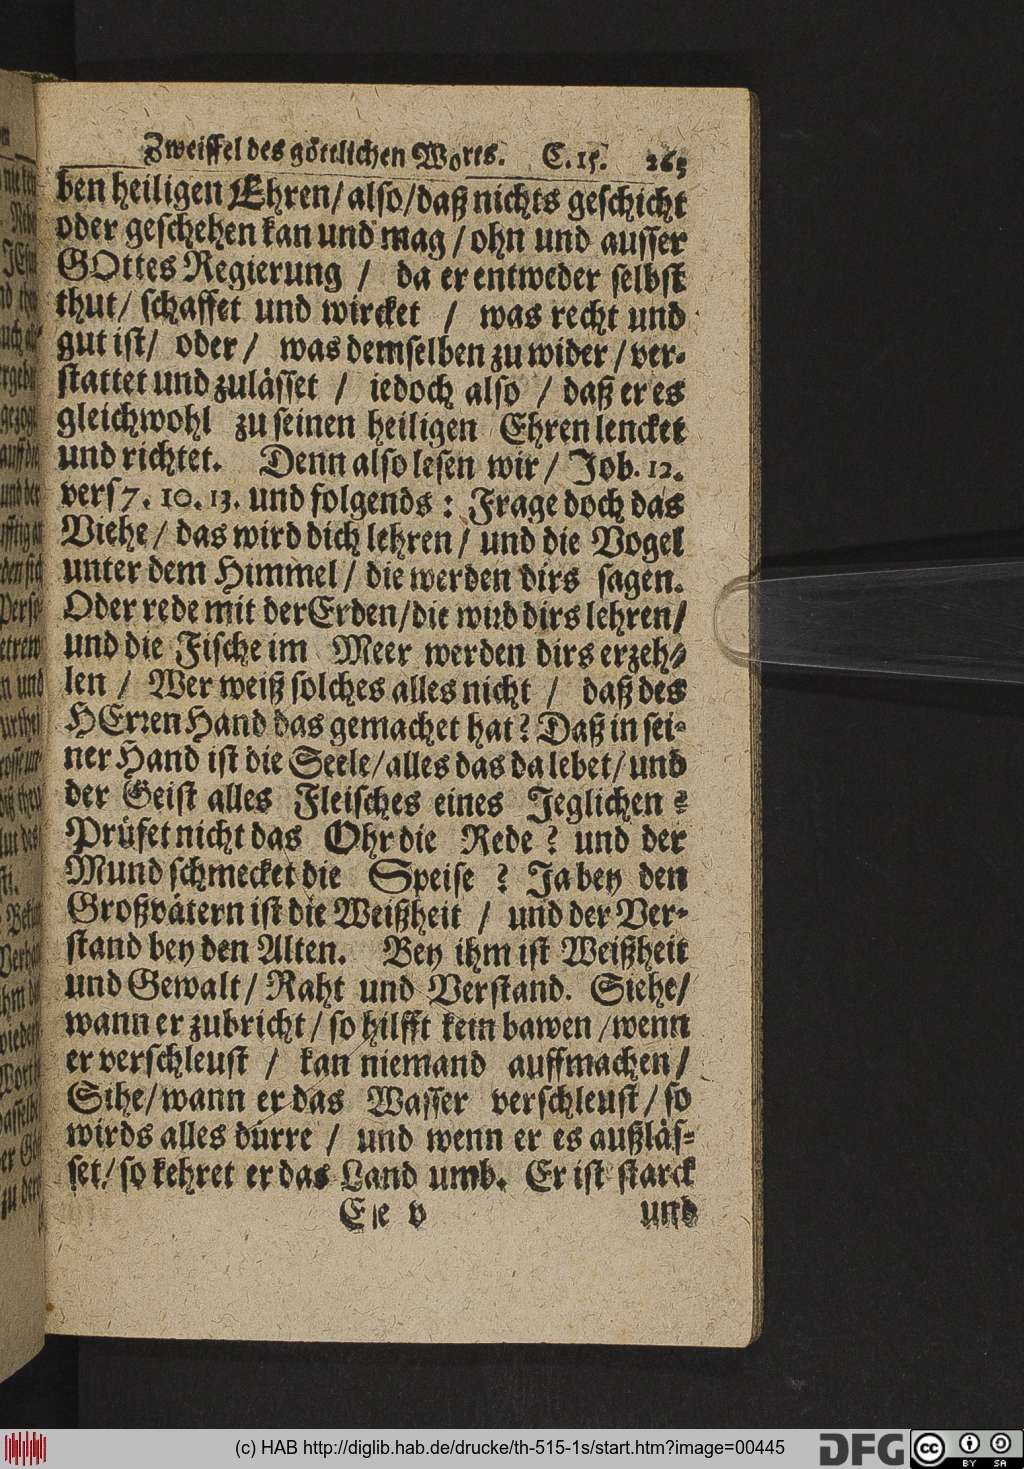 Zweiffel des göttlichen Worts. C. 15. 265
ben heiligen Ehren/ also/ daß nichts geschicht
oder geschehen kan und mag / ohn und ausser
GOttes Regierung / da er entweder selbst
thut/ schaffet und wircket / was recht und
gut ist/ oder / was demselben zu wider / ver-
stattet und zulässet / iedoch also / daß er es
gleichwohl zu seinen heiligen Ehren lencket
und richtet. Denn also lesen wir / Job. 12.
vers 7. 10. 13. und folgends : Frage doch das
Viehe / das wird dich lehren / und die Vogel
unter dem Himmel / die werden dirs sagen.
Oder rede mit der Erden/ die wird dirs lehren/
und die Fische im Meer werden dirs erzeh-
len / Wer weiß solches alles nicht / daß des
HErren Hand das gemachet hat? Daß in sei-
ner Hand ist die Seele/ alles das da lebet/ und
der Geist alles Fleisches eines Jeglichen ?
Prüfet nicht das Ohr die Rede ? und der
Mund schmecket die Speise ? Ja bey den
Großvätern ist die Weißheit / und der Ver-
stand bey den Alten. Bey ihm ist Weißheit
und Gewalt/ Raht und Verstand. Siehe/
wann er zubricht / so hilfft kein bawen / wenn
er verschleust / kan niemand auffmachen /
Sihe/ wann er das Wasser verschleust / so
wirds alles dürre / und wenn er es außläs-
set / so kehret er das Land umb. Er ist starck
Eee v und
(c) HAB http://diglib.hab.de/drucke/th-515-1s/start.htm?image=00445
DFG
cc BY SA